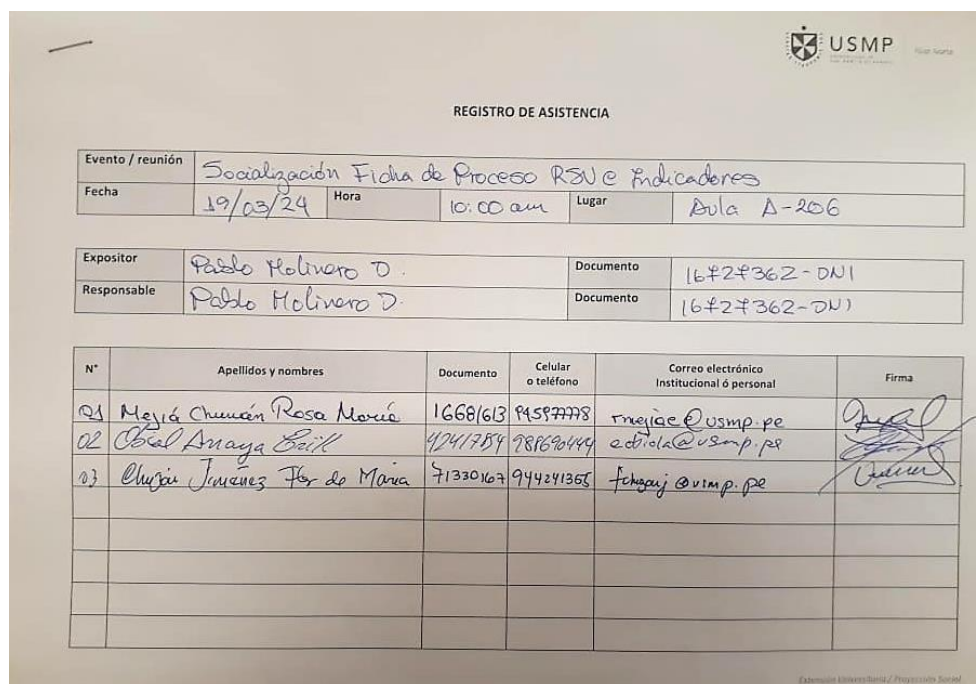 USMP
REGISTRO DE ASISTENCIA
Evento / reunión Socialización Ficha de Proceso RSU e Indicadores
Fecha 19/03/24 Hora 10:00 am Lugar Aula A-206
Expositor Pablo Molinero D. Documento 16727362-DNI
Responsable Pablo Molinero D. Documento 16727362-DNI
N° Apellidos y nombres Documento Celular o teléfono Correo electrónico Institucional ó personal Firma
01 Mejía Chumán Rosa María 16681613 945977778 rmejiae@usmp.pe
02 Anaya 988690449 @usmp.pe
03 Jiménez Flor de María 71330167 944241365 @usmp.pe
Extensión Universitaria / Proyección Social